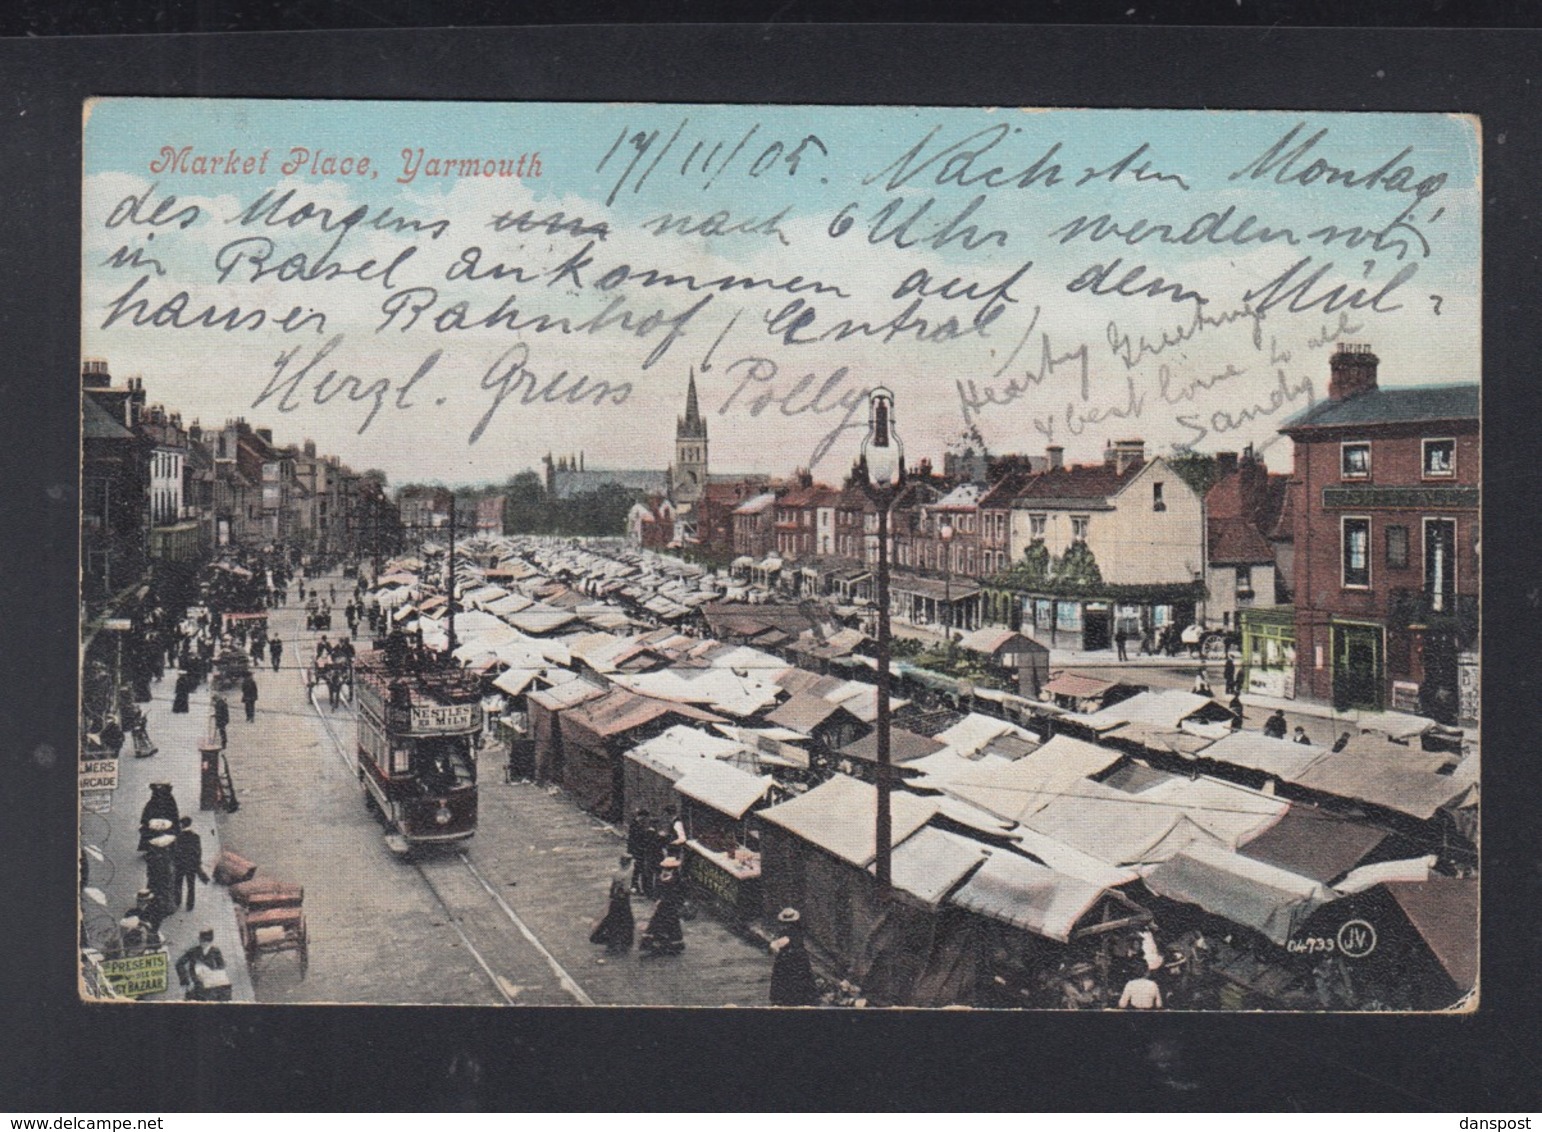 Market Place, Yarmouth
17/11/05. Nächsten Montag
des Morgens um nach 6 Uhr werden wir
in Basel ankommen auf dem Mül-
hauser Bahnhof (Central)
Herzl. Gruss Polly
Hearty Greetings
& best love to all
Sandy
NESTLE'S
MILK
LMERS
ARCADE
PRESENTS
BAZAAR
04733 JV
danspost
www.delcampe.net